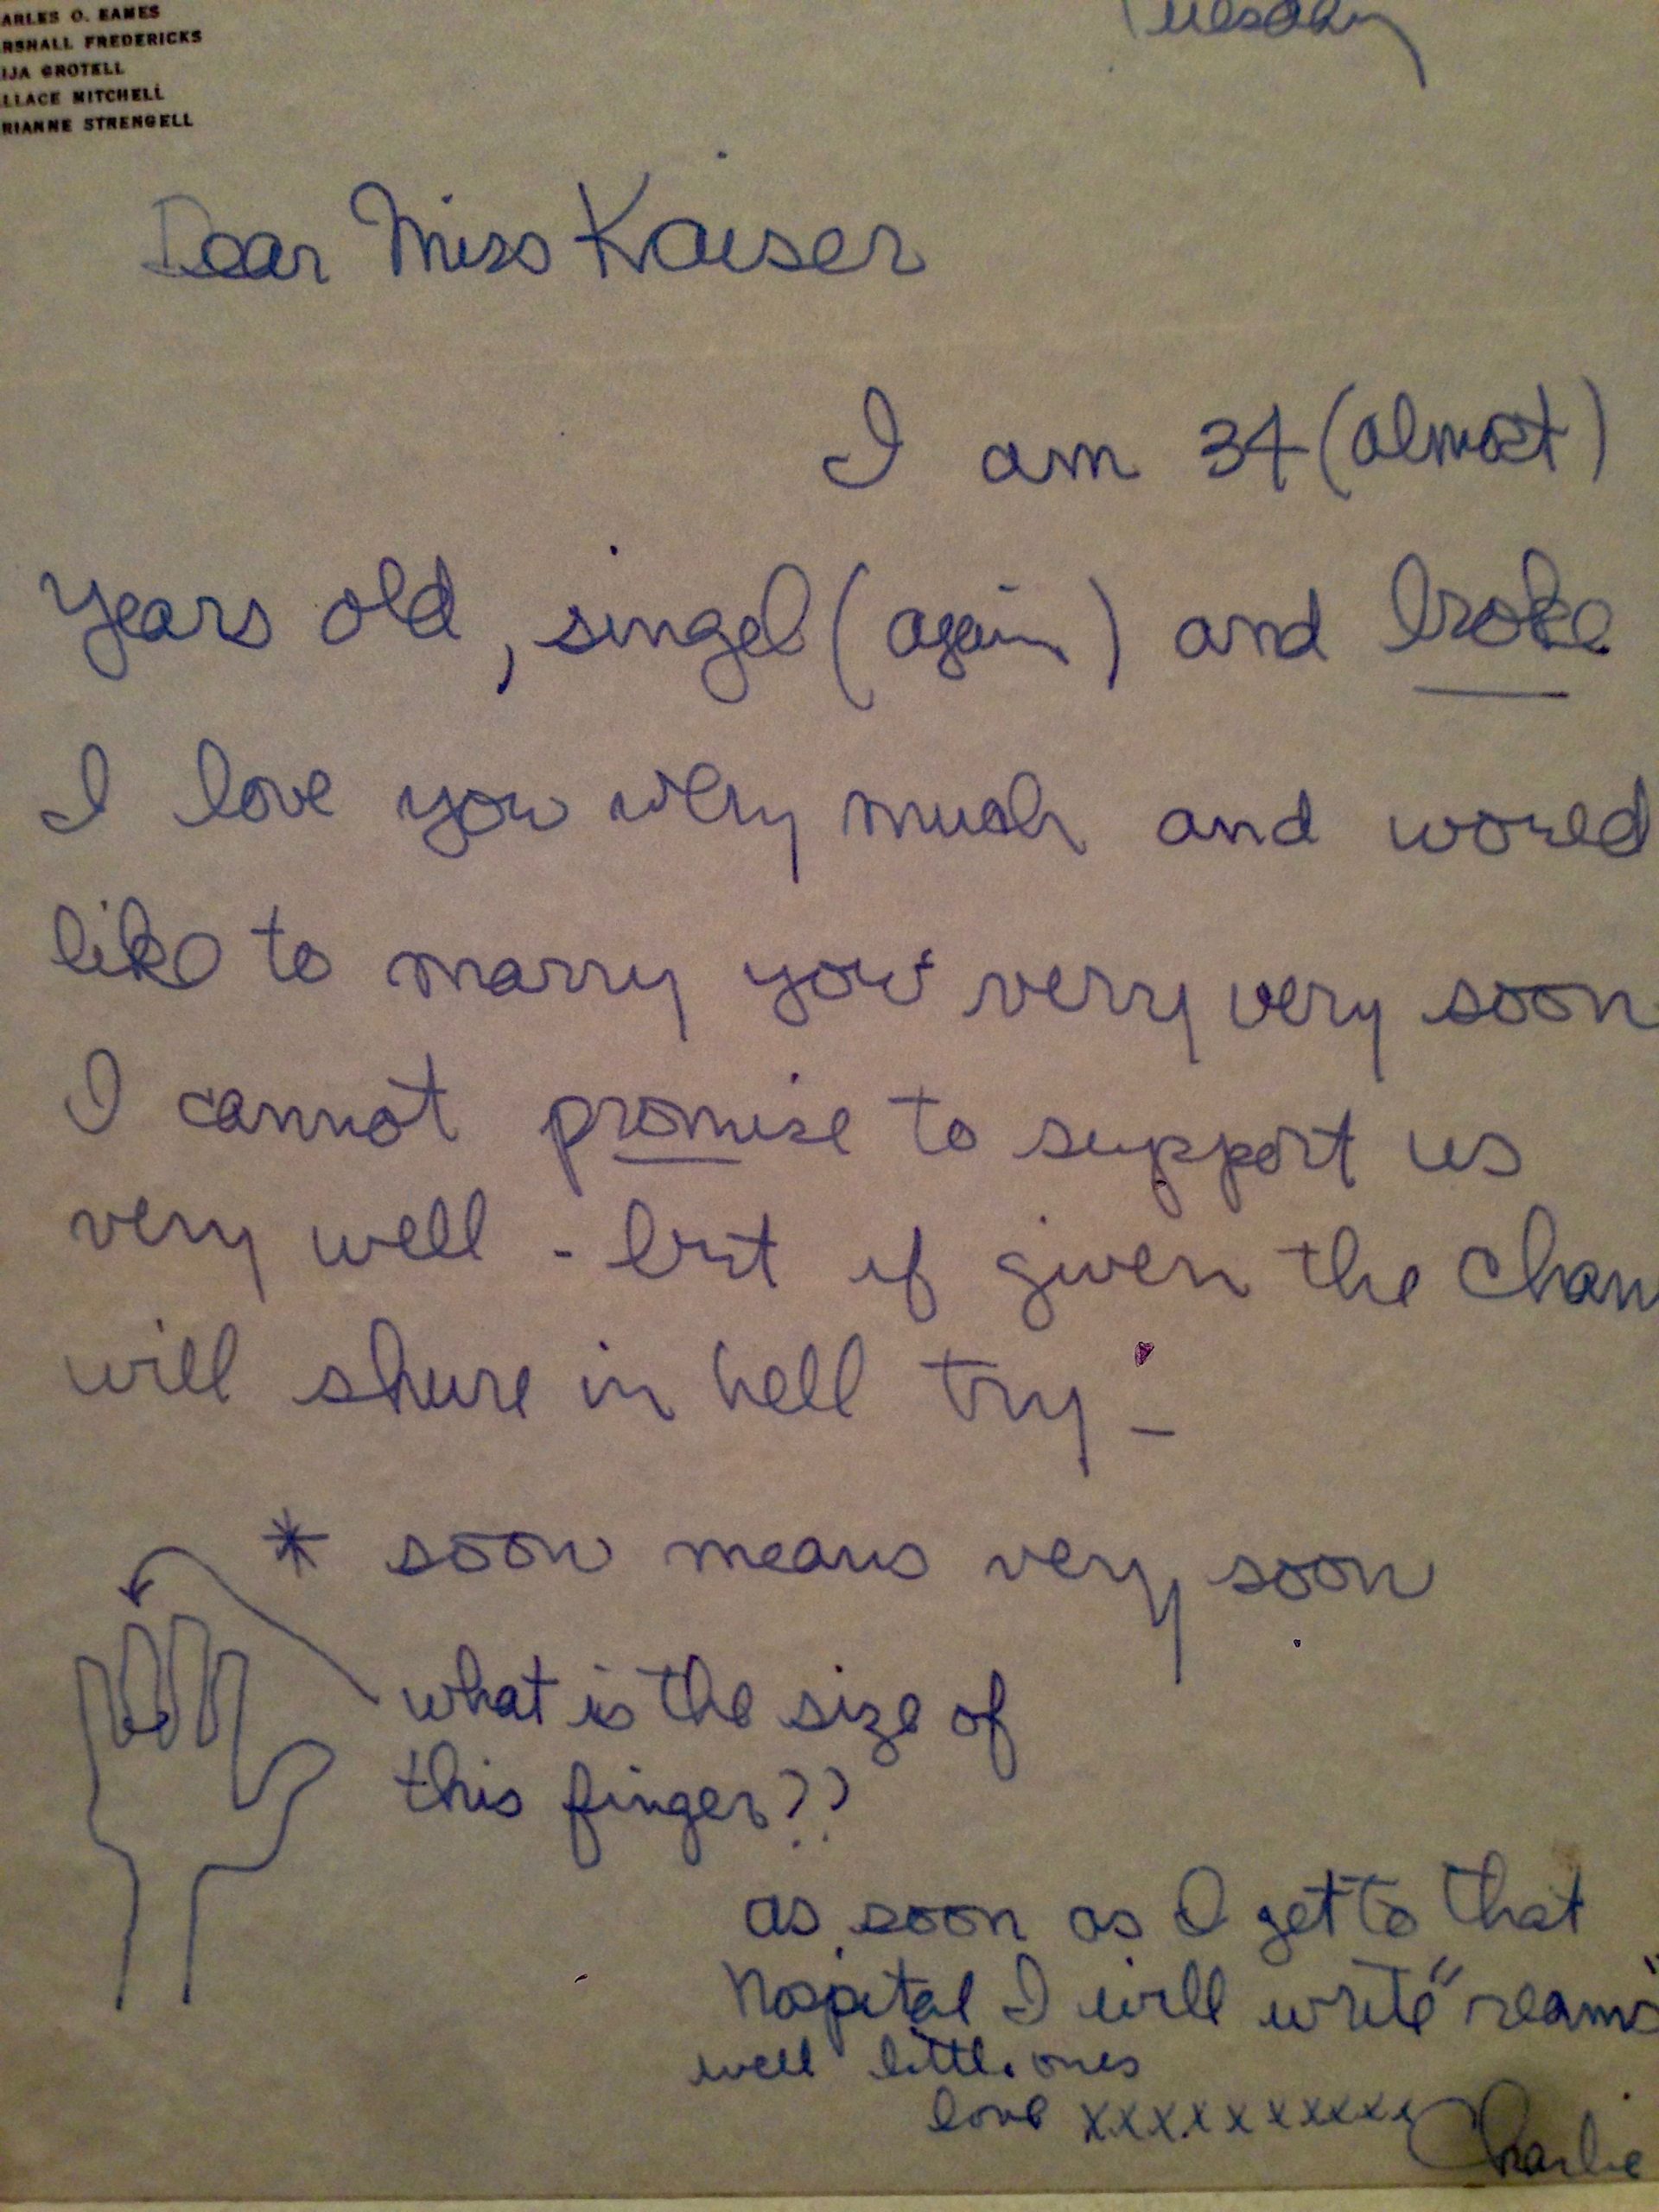 ARLES O. EAMES
RSHALL FREDERICKS
IJA GROTELL
LLACE MITCHELL
RIANNE STRENGELL
Tuesday
Dear Miss Kaiser
I am 34 (almost)
years old, singel (again) and broke
I love you very much and would
like to marry you very very soon
I cannot promise to support us
very well - but if given the chan
will shure in hell try -
* soon means very soon
what is the size of
this finger??
as soon as I get to that
hospital I will write "reams"
well little ones
love xxxxxxxxxx Charlie